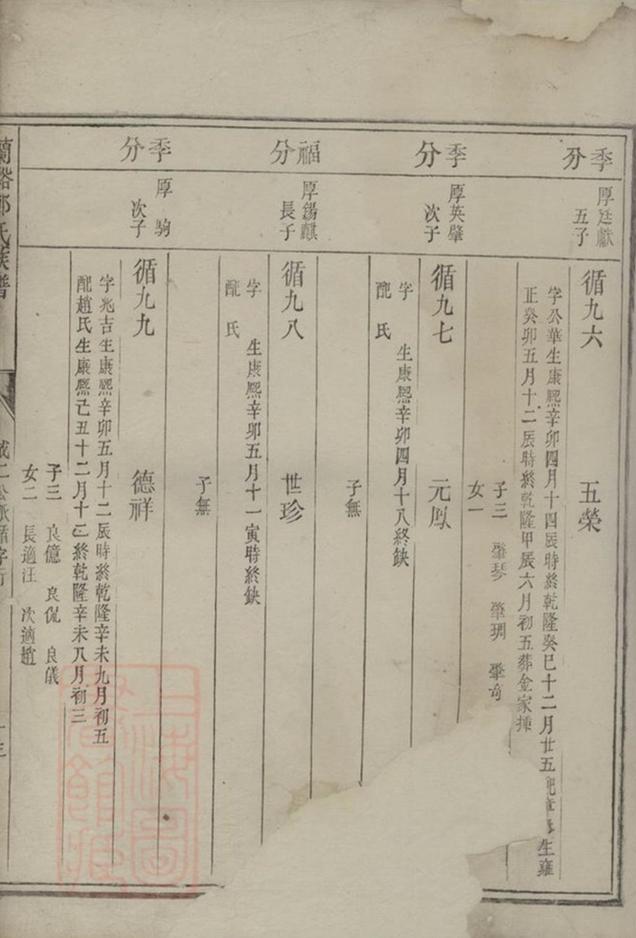 季分
厚廷獻
五子
循九六 五榮
字公華生康熙辛卯四月十四辰時終乾隆癸巳十二月廿五配 生雍
正癸卯五月十二辰時終乾隆甲辰六月初五葬金家
子三 肇琴 肇琱 肇奇
女一
季分
厚英肇
次子
循九七 元鳳
字 生康熙辛卯四月十八終缺
配 氏
子無
福分
厚錫麒
長子
循九八 世珍
字 生康熙辛卯五月十一寅時終缺
配 氏
子無
季分
厚 駒
次子
循九九 德祥
字兆吉生康熙辛卯五月十二辰時終乾隆辛未九月初五
配趙氏生康熙己丑十二月十三終乾隆辛未八月初三
子三 良億 良侃 良儀
女二 長適汪 次適趙
蘭谿 氏族譜
二公派循字行
十三
上海圖書館藏